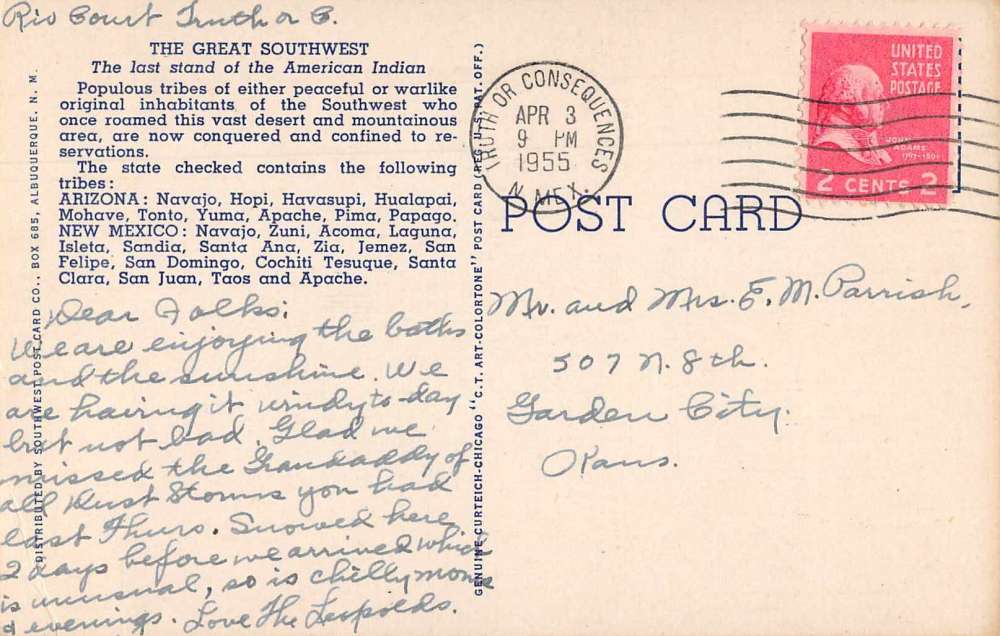 Rio Court Truth or C.
THE GREAT SOUTHWEST
The last stand of the American Indian
Populous tribes of either peaceful or warlike
original inhabitants of the Southwest who
once roamed this vast desert and mountainous
area, are now conquered and confined to re-
servations.
The state checked contains the following
tribes:
ARIZONA: Navajo, Hopi, Havasupi, Hualapai,
Mohave, Tonto, Yuma, Apache, Pima, Papago.
NEW MEXICO: Navajo, Zuni, Acoma, Laguna,
Isleta, Sandia, Santa Ana, Zia, Jemez, San
Felipe, San Domingo, Cochiti Tesuque, Santa
Clara, San Juan, Taos and Apache.
Dear Folks:
We are enjoying the baths
and the sunshine. We
are having it windy to-day
but not bad. Glad we
missed the Grandaddy of
all Dust Storms you had
last Thurs. Snowed here
2 days before we arrived which
is unusual, so is chilly morns
& evenings. Love The Leupolds.
DISTRIBUTED BY SOUTHWEST POST CARD CO., BOX 685, ALBUQUERQUE, N. M.
GENUINE CURTEICH-CHICAGO "C.T. ART-COLORTONE" POST CARD (REG. U.S. PAT. OFF.)
TRUTH OR CONSEQUENCES
APR 3
9 PM
1955
N. MEX.
UNITED
STATES
POSTAGE
JOHN
ADAMS
1797-1801
2 CENTS 2
POST CARD
Mr. and Mrs. E. M. Parrish,
507 N. 8th.
Garden City.
Kans.